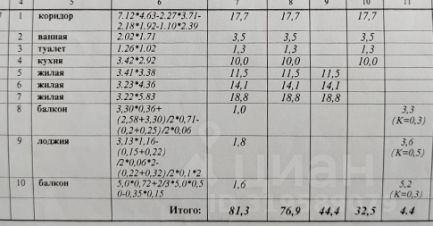 4 5 6 7 8 9 10 11
1 коридор 7.12*4.63-2.27*3.71- 17,7 17,7 17,7
2.18*1.92-1.10*2.39
2 ванная 2.02*1.71 3,5 3,5 3,5
3 туалет 1.26*1.02 1,3 1,3 1,3
4 кухня 3.42*2.92 10,0 10,0 10,0
5 жилая 3.41*3.38 11,5 11,5 11,5
6 жилая 3.23*4.36 14,1 14,1 14,1
7 жилая 3.22*5.83 18,8 18,8 18,8
8 балкон 3,30*0,36+ 1,0 3,3
(2,58+3,30)/2*0,71- (K=0,3)
(0,2+0,25)/2*0,06
9 лоджия 3,13*1,16- 1,8 3,6
(0,15+0,22) (K=0,5)
/2*0,06*2-
(0,22+0,32)/2*0,1*2
10 балкон 5,0*0,72+2/3*5,0*0,5 1,6 5,2
0-0,35*0,15 (K=0,3)
Итого: 81,3 76,9 44,4 32,5 4.4
циан